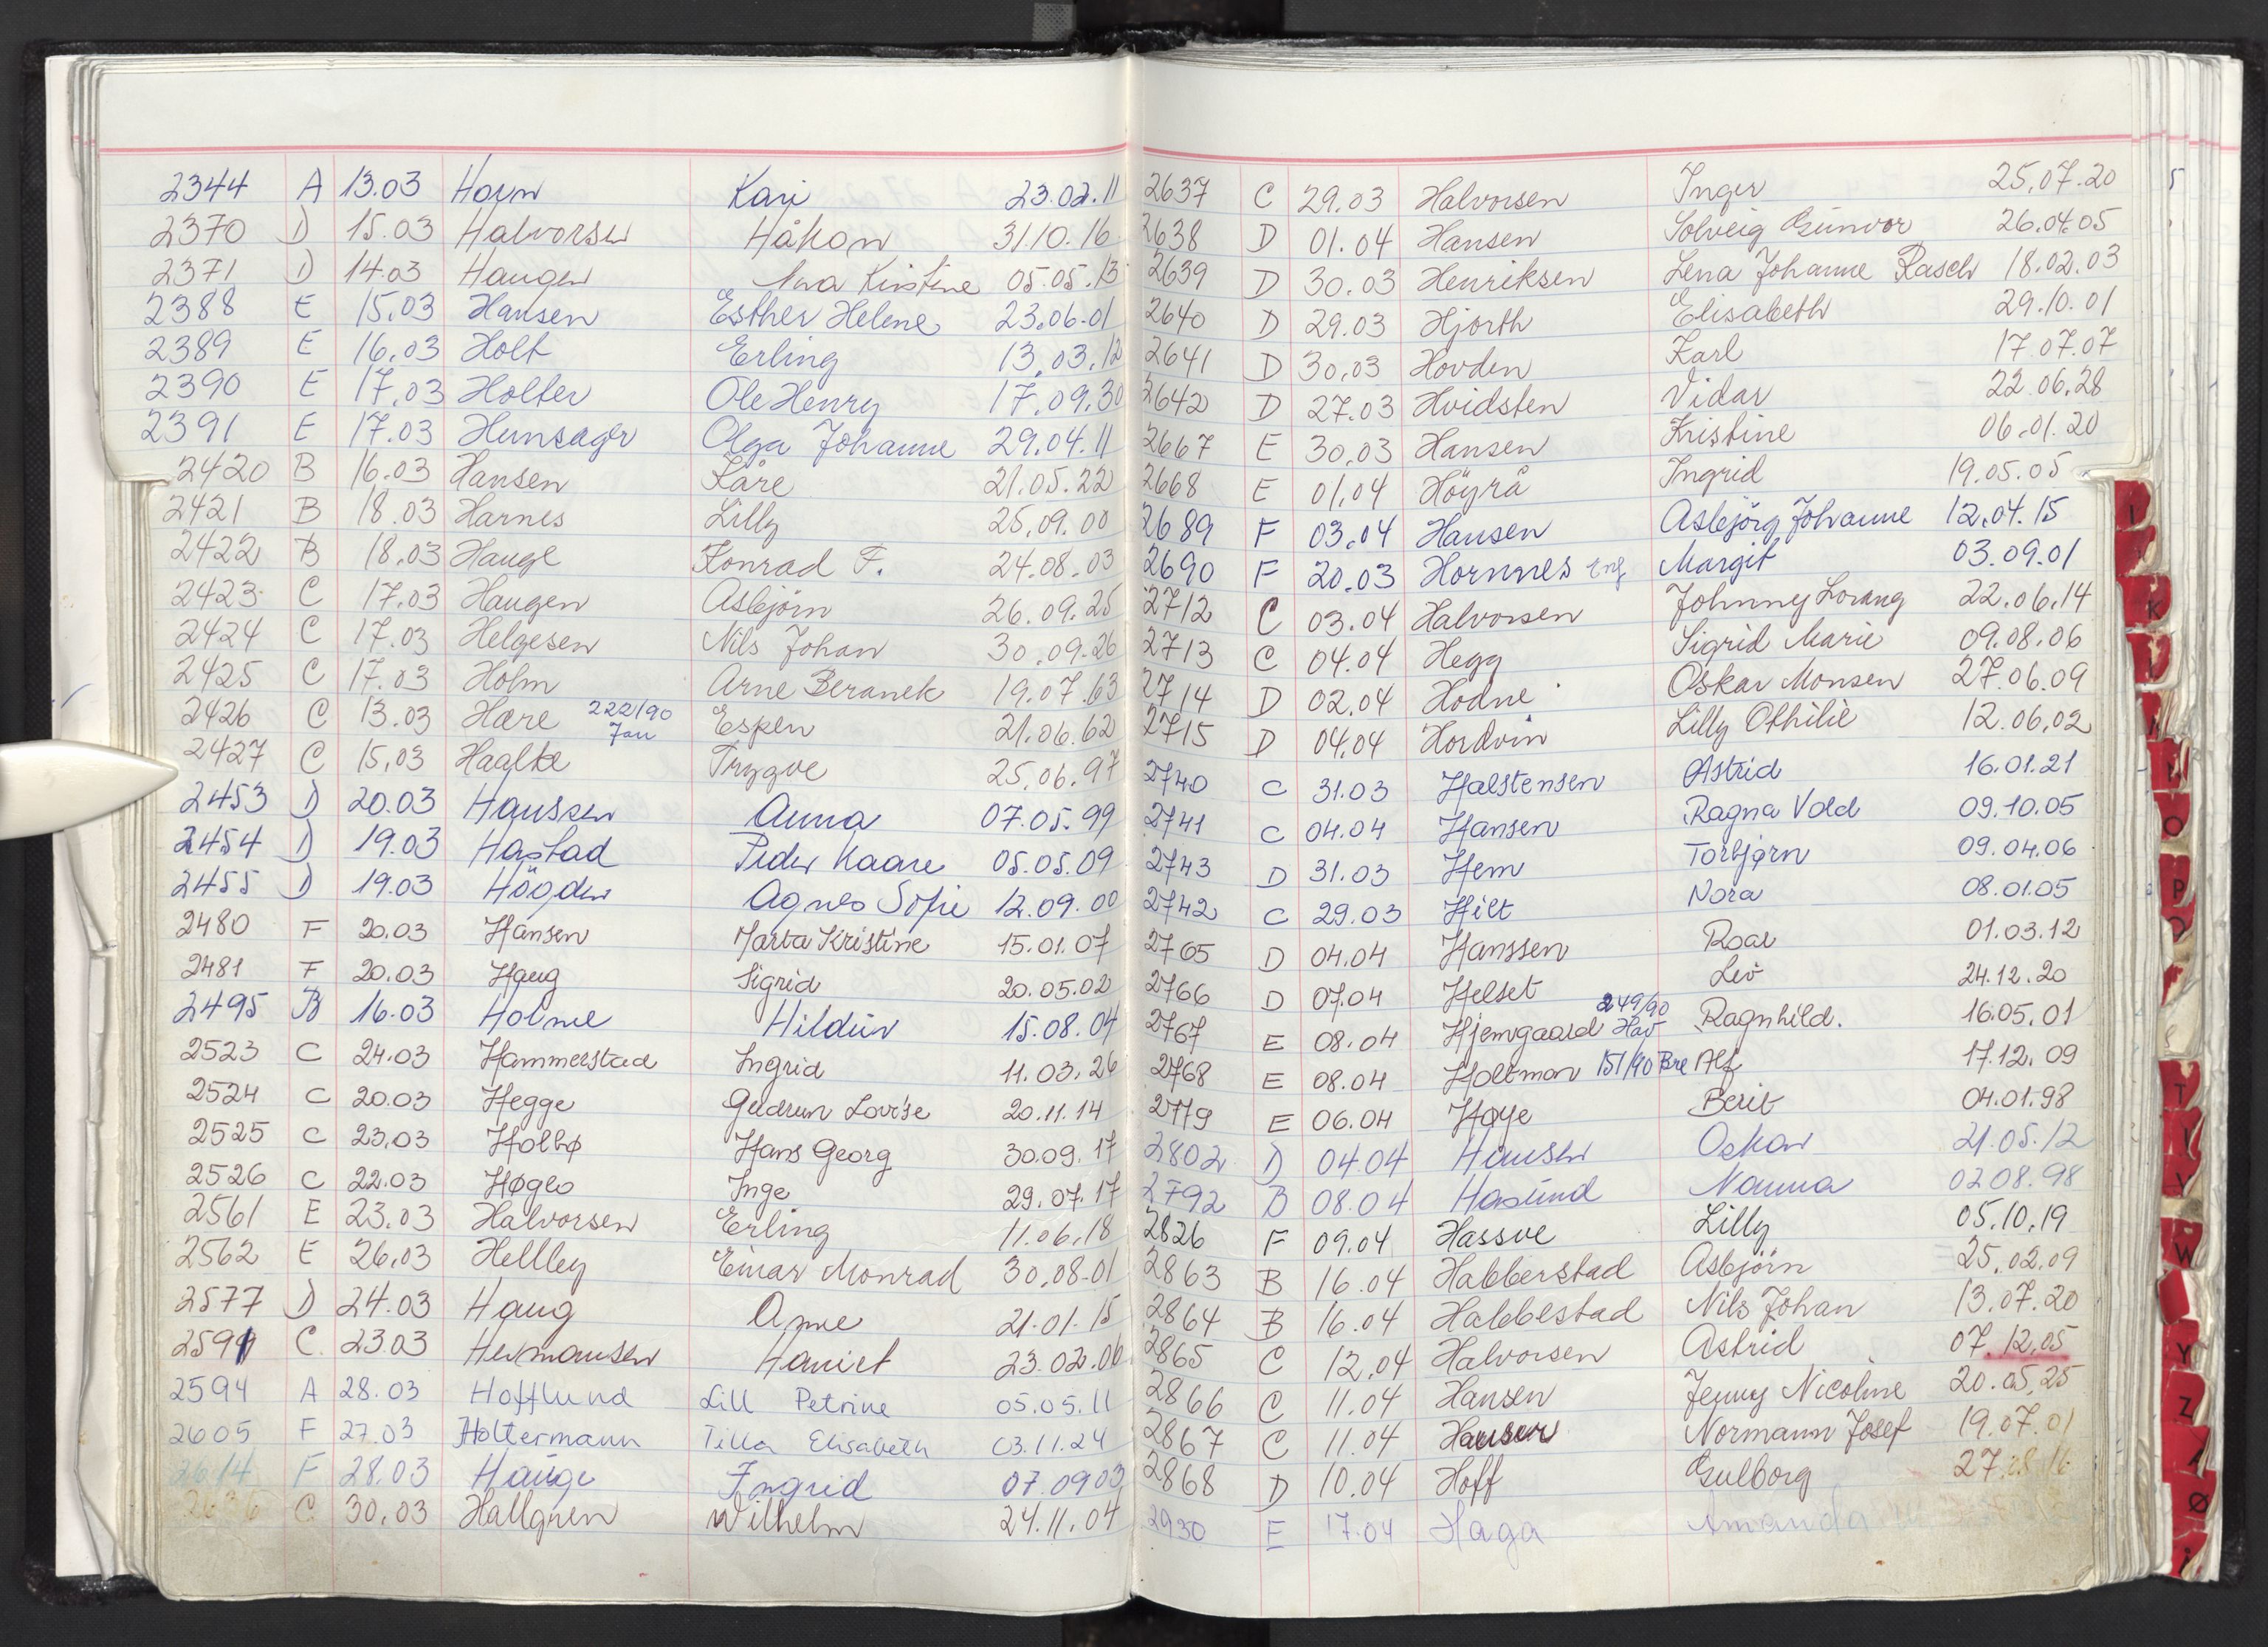 2344 A 13.03 Horn Kari 23.02.11
2370 D 15.03 Halvorsen Håkon 31.10.16
2371 D 14.03 Haugen Kirstine 05.05.13
2388 E 15.03 Hansen Esther Helene 23.06.01
2389 E 16.03 Holt Erling 13.03.12
2390 E 17.03 Holter Ole Henry 17.09.30
2391 E 17.03 Hunsager Olga Johanne 29.04.11
2420 B 16.03 Hansen Kåre 21.05.22
2421 B 18.03 Harnes Lilly 25.09.00
2422 B 18.03 Hauge Konrad F. 24.08.03
2423 C 17.03 Haugen Asbjörn 26.09.25
2424 C 17.03 Helgesen Nils Johan 30.09.26
2425 C 17.03 Holm Arne Beranek 19.07.63
2426 C 13.03 Hære 222/90 Jan Espen 21.06.62
2427 C 15.03 Haalke Trygve 25.06.97
2453 D 20.03 Hanssen Anna 07.05.99
2454 D 19.03 Hastad Peder Kaare 05.05.09
2455 D 19.03 Högden Agnes Sofie 12.09.00
2480 F 20.03 Hansen Marta Kristine 15.01.07
2481 F 20.03 Haug Sigrid 20.05.02
2495 B 16.03 Holme Hildur 15.08.04
2523 C 24.03 Hammerstad Ingrid 11.03.26
2524 C 20.03 Hegge Gudrun Lovise 20.11.14
2525 C 23.03 Holbø Hans Georg 30.09.17
2526 C 22.03 Høglo Inge 29.07.17
2561 E 23.03 Halvorsen Erling 11.06.18
2562 E 26.03 Hellley Einar Monrad 30.08.01
2577 D 24.03 Haug Arne 21.01.15
2591 C 23.03 Hermansen Harriet 23.02.06
2594 A 28.03 Hofflund Lill Petrine 05.05.11
2605 F 27.03 Holtermann Tilla Elisabeth 03.11.24
2614 F 28.03 Hauge Ingrid 07.09.03
2636 C 30.03 Hallgren Wilhelm 24.11.04
2637 C 29.03 Halvorsen Inger 25.07.20
2638 D 01.04 Hansen Solveig Gunvor 26.04.05
2639 D 30.03 Henriksen Lena Johanne Rasch 18.02.03
2640 D 29.03 Hjorth Elisabeth 29.10.01
2641 D 30.03 Hovden Karl 17.07.07
2642 D 27.03 Hvidsten Vidar 22.06.28
2667 E 30.03 Hansen Kristine 06.01.20
2668 E 01.04 Höyrå Ingrid 19.05.05
2689 F 03.04 Hansen Asbjörg Johanne 12.04.15
2690 F 20.03 Hornnes Eng Margit 03.09.01
2712 C 03.04 Halvorsen Johnny Lorang 22.06.14
2713 C 04.04 Hegg Sigrid Marie 09.08.06
2714 D 02.04 Hodne Oskar Monsen 27.06.09
2715 D 04.04 Hordvin Lilly Othilie 12.06.02
2740 C 31.03 Halstensen Astrid 16.01.21
2741 C 04.04 Hansen Ragna Vold 09.10.05
2743 D 31.03 Hem Torbjørn 09.04.06
2742 C 29.03 Hilt Nora 08.01.05
2765 D 04.04 Hanssen Roar 01.03.12
2766 D 07.04 Helset Liv 24.12.20
2767 E 08.04 Hjemgaard 249/90 Hav Ragnhild. 16.05.01
2768 E 08.04 Holtman 151/90 Bre Alf 17.12.09
2779 E 06.04 Høye Berit 04.01.98
2802 D 04.04 Hansen Oskar 21.05.12
2792 B 08.04 Hasund Nanna 02.08.98
2826 F 09.04 Hassve Lilly 05.10.19
2863 B 16.04 Habberstad Asbjörn 25.02.09
2864 B 16.04 Habbestad Nils Johan 13.07.20
2865 C 12.04 Halvorsen Astrid 07.12.05
2866 C 11.04 Hansen Jenny Nicoline 20.05.25
2867 C 11.04 Hansen Normann Josef 19.07.01
2868 D 10.04 Hoff Gulborg 27.08.16
2930 E 17.04 Haga Amanda